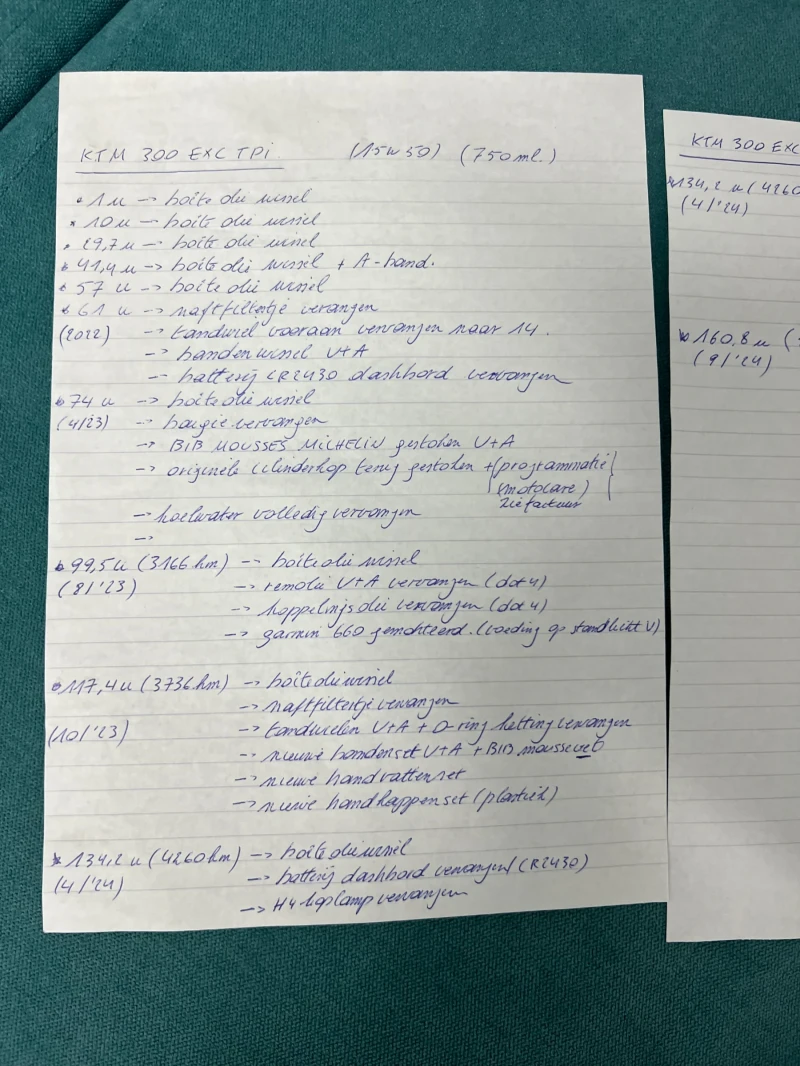 KTM 300 EXC TPi. (15W50) (750ml.)
• 1u → boîte olie wissel
• 10u → boîte olie wissel
• 29,7u → boîte olie wissel
• 41,4u → boîte olie wissel + A-band.
• 57 u → boîte olie wissel
• 61 u → naftfiltertje vervangen
(2022) → tandwiel vooraan vervangen naar 14.
→ bandenwissel V+A
→ batterij CR2430 dashbord vervangen
• 74 u → boîte olie wissel
(4/23) → bougie vervangen
→ BIB MOUSSES MiCHELiN gestoken V+A
→ originele cilinderkop terug gestoken + (programmatie
(motocare)
zie factuur
→ koelwater volledig vervangen
→
• 99,5u (3166 km) → boîte olie wissel
(8/'23) → remolie V+A vervangen (dot4)
→ koppelings olie vervangen (dot4)
→ garmin 660 gemonteerd. (voeding op standlicht V)
• 117,4u (3736 km) → boîte olie wissel
→ naftfiltertje vervangen
(10/'23) → tandwielen V+A + O-ring ketting vervangen
→ nieuwe bandenset V+A + BIB mousse
→ nieuwe handvatten set
→ nieuwe handkappen set (plastiek)
• 134,2 u (4260 km) → boîte olie wissel
(4/'24) → batterij dashbord vervangen (CR2430)
→ H4 koplamp vervangen
KTM 300 EXC
• 134,2 u (4260
(4/'24)
• 160,8 u (
(9/'24)